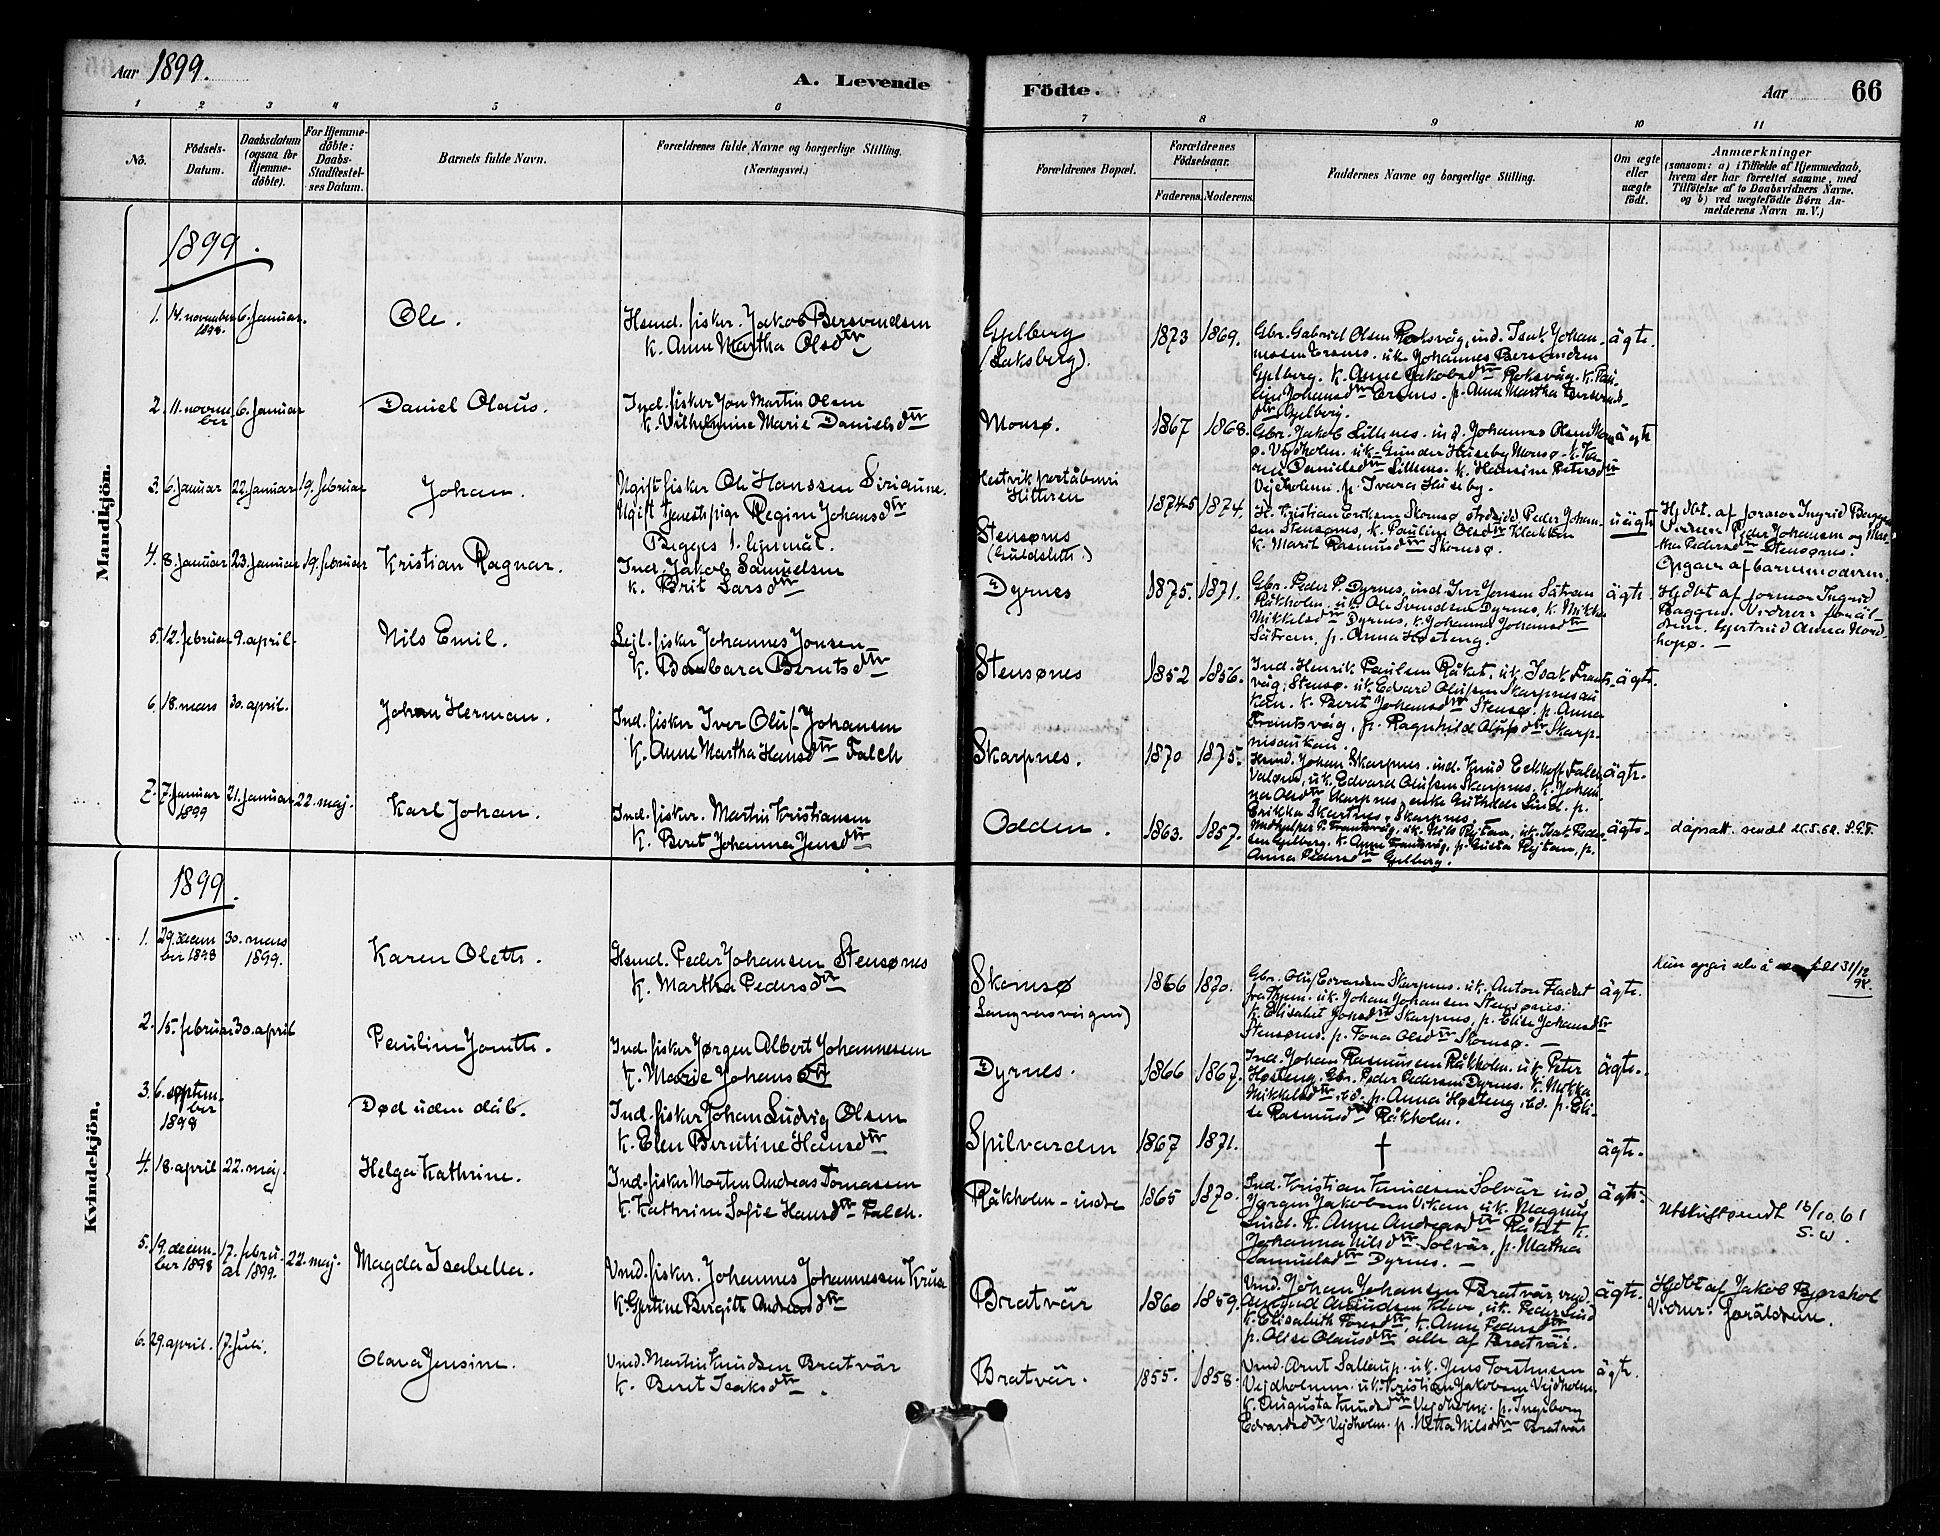 Aar 1899.
A. Levende
Födte.
Aar
66
1 2 3 4 5 6 7 8 9 10 11
No.
Födsels-
Datum.
Daabsdatum
(ogsaa for
Hjemme-
döbte).
For Hjemme-
döbte:
Daabs-
Stadfæstel-
ses Datum.
Barnets fulde Navn.
Forældrenes fulde Navne og borgerlige Stilling.
(Næringsvei.)
Forældrenes Bopæl.
Forældrenes
Födselsaar.
Faderens. Moderens.
Faddernes Navne og borgerlige Stilling.
Om ægte
eller
uægte
født.
Anmærkninger
(saasom: a) i Tilfælde af Hjemmedaab,
hvem der har forrettet samme, med
Tilföielse af to Daabsvidners Navne.
og b) ved uægtefödte Børn An-
melderens Navn m. V.)
Mandkjön.
1899.
1. 14. november 1898. 6. januar. Ole.
Hsmd. fisker. Jakob Bersvendsen
k. Anne Martha Olsdtr
Gjelberg
(Laksberg).
1873 1869.
Gbr. Gabriel Olsen Roksvåg, ind. Isak Johan-
Gjelberg. k. Anne Jakobsdtr Roksvåg.
ägte.
2. 11. novem ber 6. januar Daniel Olaus.
Ind. fisker Jon Martin Olsen
k. Vilhelmine Marie Danielsdtr
Monsø.
1867 1868.
ø. Vejholm. uk. Gunder Huseby Monsø.
Vejdholm. p. Ivara Huseby.
ägte
3. 6. januar 22. januar 19. februar Johan.
Ugift fisker Ole Hanssen
Ugift tjenestepige Regine Johansdtr
Begges 1. lejermål.
Hitteren
Stensønes
1874. 
H. Kristian Eriksen Skomsø
sen Stensønes, k. Pauline Olsdtr
k. Marit Rasmusdtr Skomsø.
uägte
Hjdbt. af jormor Ingrid Bagge
Vidner: Peder Johansen og Mar-
tha Pedersdtr Stensønes.
Opgaer af barnemoderen.
4. 8. januar 23. januar 19. februar Kristian Ragnar.
Ind. Jakob Samuelsen
k. Brit Larsdtr
Dyrnes
1875. 1871.
Gbr. Peder P. Dyrnes, ind. Iver Jonsen Sätran
Råkholm. uk. Ole Svendsen Dyrnes, k. Mikka
Mikkelsdtr Dyrnes, k. Johanna Johansdtr
Sätran, p. Anna Høsteng.
ägte
Hjdbt af jormor Ingrid
Vidner: foräl-
drene, Gjertrud Anna Nord
hopø.
5. 12. februar 9. april. Nils Emil.
Lejl. fisker Johannes Jonsen
k. Barbara Berntsdtr
Stensønes
1852 1856.
Ind. Henrik Paulsen Råket, uk. Isak Frants-
våg, Stensø. uk. Edvard Olufsen Skarpnesau
kan. k. Berit Johansdtr Stensø, p. Anna
Frantsvåg, p. Ragnhild Olufsdtr Skarp-
nesaukan.
ägte.
6. 18. mars 30. april. Johan Herman.
Ind. fisker Iver Oluf Johansen
k. Anne Martha Hansdtr Falch
Skarpnes.
1870 1875.
Johan Skarpnes. ind. Knud Eckhoff Falch
uk. Edvard Olufsen Skarpnes, k. Johan-
na Olsdtr Skarpnes,
Skarpnes.
ägte.
7. 7. januar 1899 21. januar 22. maj. Karl Johan.
Ind. fisker. Martin Kristiansen
k. Beret Johanna Jensdtr
Odden.
1863. 1857.
P. Frantsvåg, uk. Nils Rejtan, uk. Isak Peder-
sen Gjelberg, k. Anne Frantsvåg, p. Gusta Rejtan, p.
Anna Pedersdtr Gjelberg.
ägte.
dåpsatt. sendt
Kvindekjön.
1899.
1. 29. decem ber 1898 30. mars 1899. Karen Olette.
Hsmd. Peder Johansen Stensønes
k. Martha Pedersdtr
Skomsø
1866 1870.
Gbr. Oluf Edvardsen Skarpnes. uk. Anton Flaaket
uk. Johan Johansen Stensønes.
k. Elisabet Johsdtr Skarpnes, p. Elise Johansdtr
Stensønes. p. Fona Olsdtr Skomsø.
ägte.
31/12 98.
2. 15. februar 30. april Pauline Jonette.
Ind. fisker Jørgen Albert Johannesen
k. Marie Johansdtr
Dyrnes.
1866 1867.
Ind. Johan Rasmussen Råkholm. uk. Peter
Høsteng. Gbr. Peder Pedersen Dyrnes. k. Mikka
Mikkelsdtr, ibd. p. Anna Høsteng, ibd. p. Eli-
se Rasmusdtr Råkholm.
ägte.
3. 6. septem- ber 1898 Død uden dåb.
Ind. fisker Johan Ludvig Olsen
k. Elen Berntine Hansdtr
Spilvarden
1867 1871.
†
ägte.
4. 18. april 22. maj. Helga Kathrine.
Ind. fisker Morten Andreas Tomassen
k. Kathrine Sofie Hansdtr Falch.
Råkholm-indre
1865 1870.
Ind. Kristian Knudsen Solvär ind.
Jørgen Jakobsen Vikan, uk. Magnus
Lund. k. Anne Andreasdtr Råket k.
Johanna Nilsdtr Solvär, p. Mathea
Samuelsdtr Dyrnes.
ägte.
Utskrift sendt 16/10.61
S.W.
5. 19. decem- ber 1898 17. febru- ar 1899. 22. maj. Magda Isabella.
Vmd. fisker. Johannes Johannessen Kruse
k. Gjertine Birgitte Andreasdtr
Bratvär
1860 1859.
Vmd. Johan Johansen Bratvär, vmd.
Amund Amundsen Kleve, uk. Peder Lund
k. Elisabeth Toresdtr, k. Anne Pedersdtr
p. Olise Olausdtr alle af Bratvär.
ägte.
Hjdbt af Jakob Bjørshol
Vidner: forälderne.
6. 29. april. 17. juli. Olava Jensine.
Vmd. Martin Knudsen Bratvär
k. Beret Isaksdtr.
Bratvär.
1855. 1858.
Vmd. Arnt Sallaup. uk. Jens Torstensen
Vejdholmen. uk. Kristian Jakobsen Vejdholm.
k. Augusta Knudsdtr Vejdholm. p. Ingeborg
Edvardsdtr Vejdholm. p. Netta Nilsdtr Bratvär
ägte.